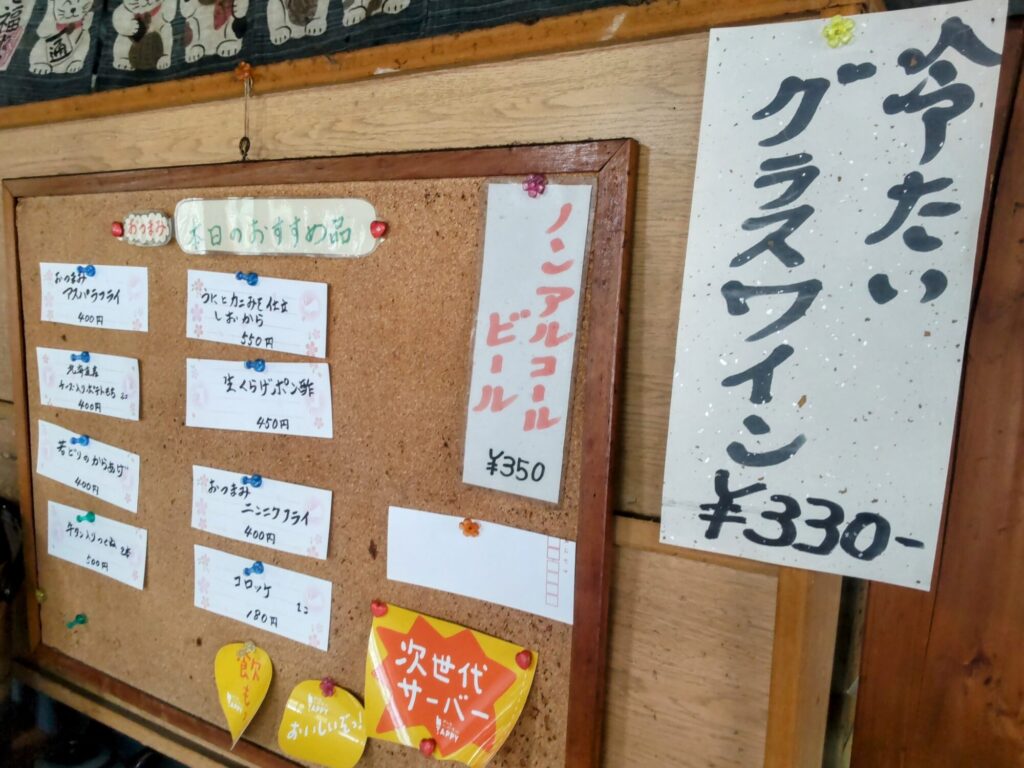 おつまみ
本日のおすすめ品
おつまみ
アスパラフライ
400円
北海道産
チーズ入りポテトもち 2コ
400円
若どりのからあげ
400円
牛タン入りつくね 2本
500円
うにとカニみそ仕立
しおから
550円
生くらげポン酢
450円
おつまみ
ニンニクフライ
400円
コロッケ
1コ
180円
ノンアルコール
ビール
¥350
冷たい
グラスワイン
¥330-
飲も
おいしい
次世代
サーバー
福
通